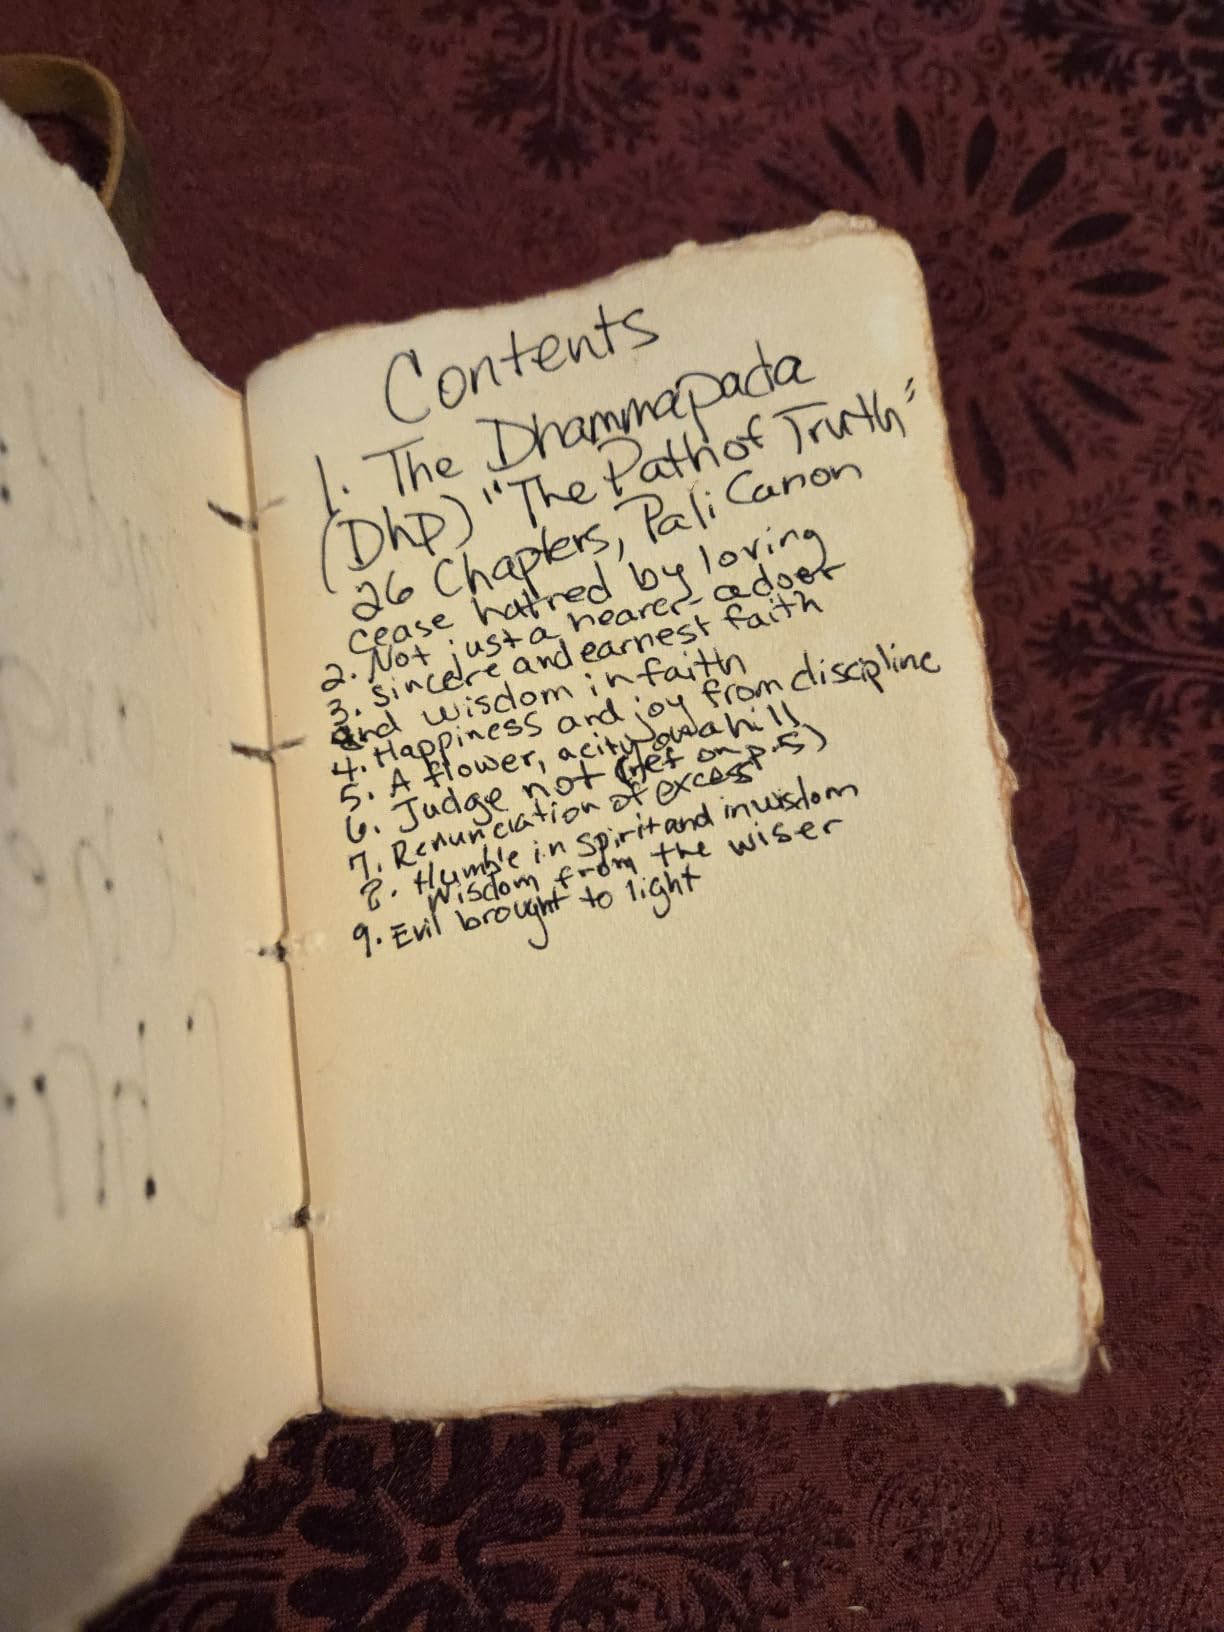 Contents
1. The Dhammapada
(DhP) "The Path of Truth"
26 Chapters, Pali Canon
cease hatred by loving
2. Not just a hearer- a doer
3. sincere and earnest faith
and wisdom in faith
4. Happiness and joy from discipline
5. A flower, a city on a hill
6. Judge not (ref on p.5)
7. Renunciation of excess
8. Humble in spirit and in wisdom
Wisdom from the wiser
9. Evil brought to light